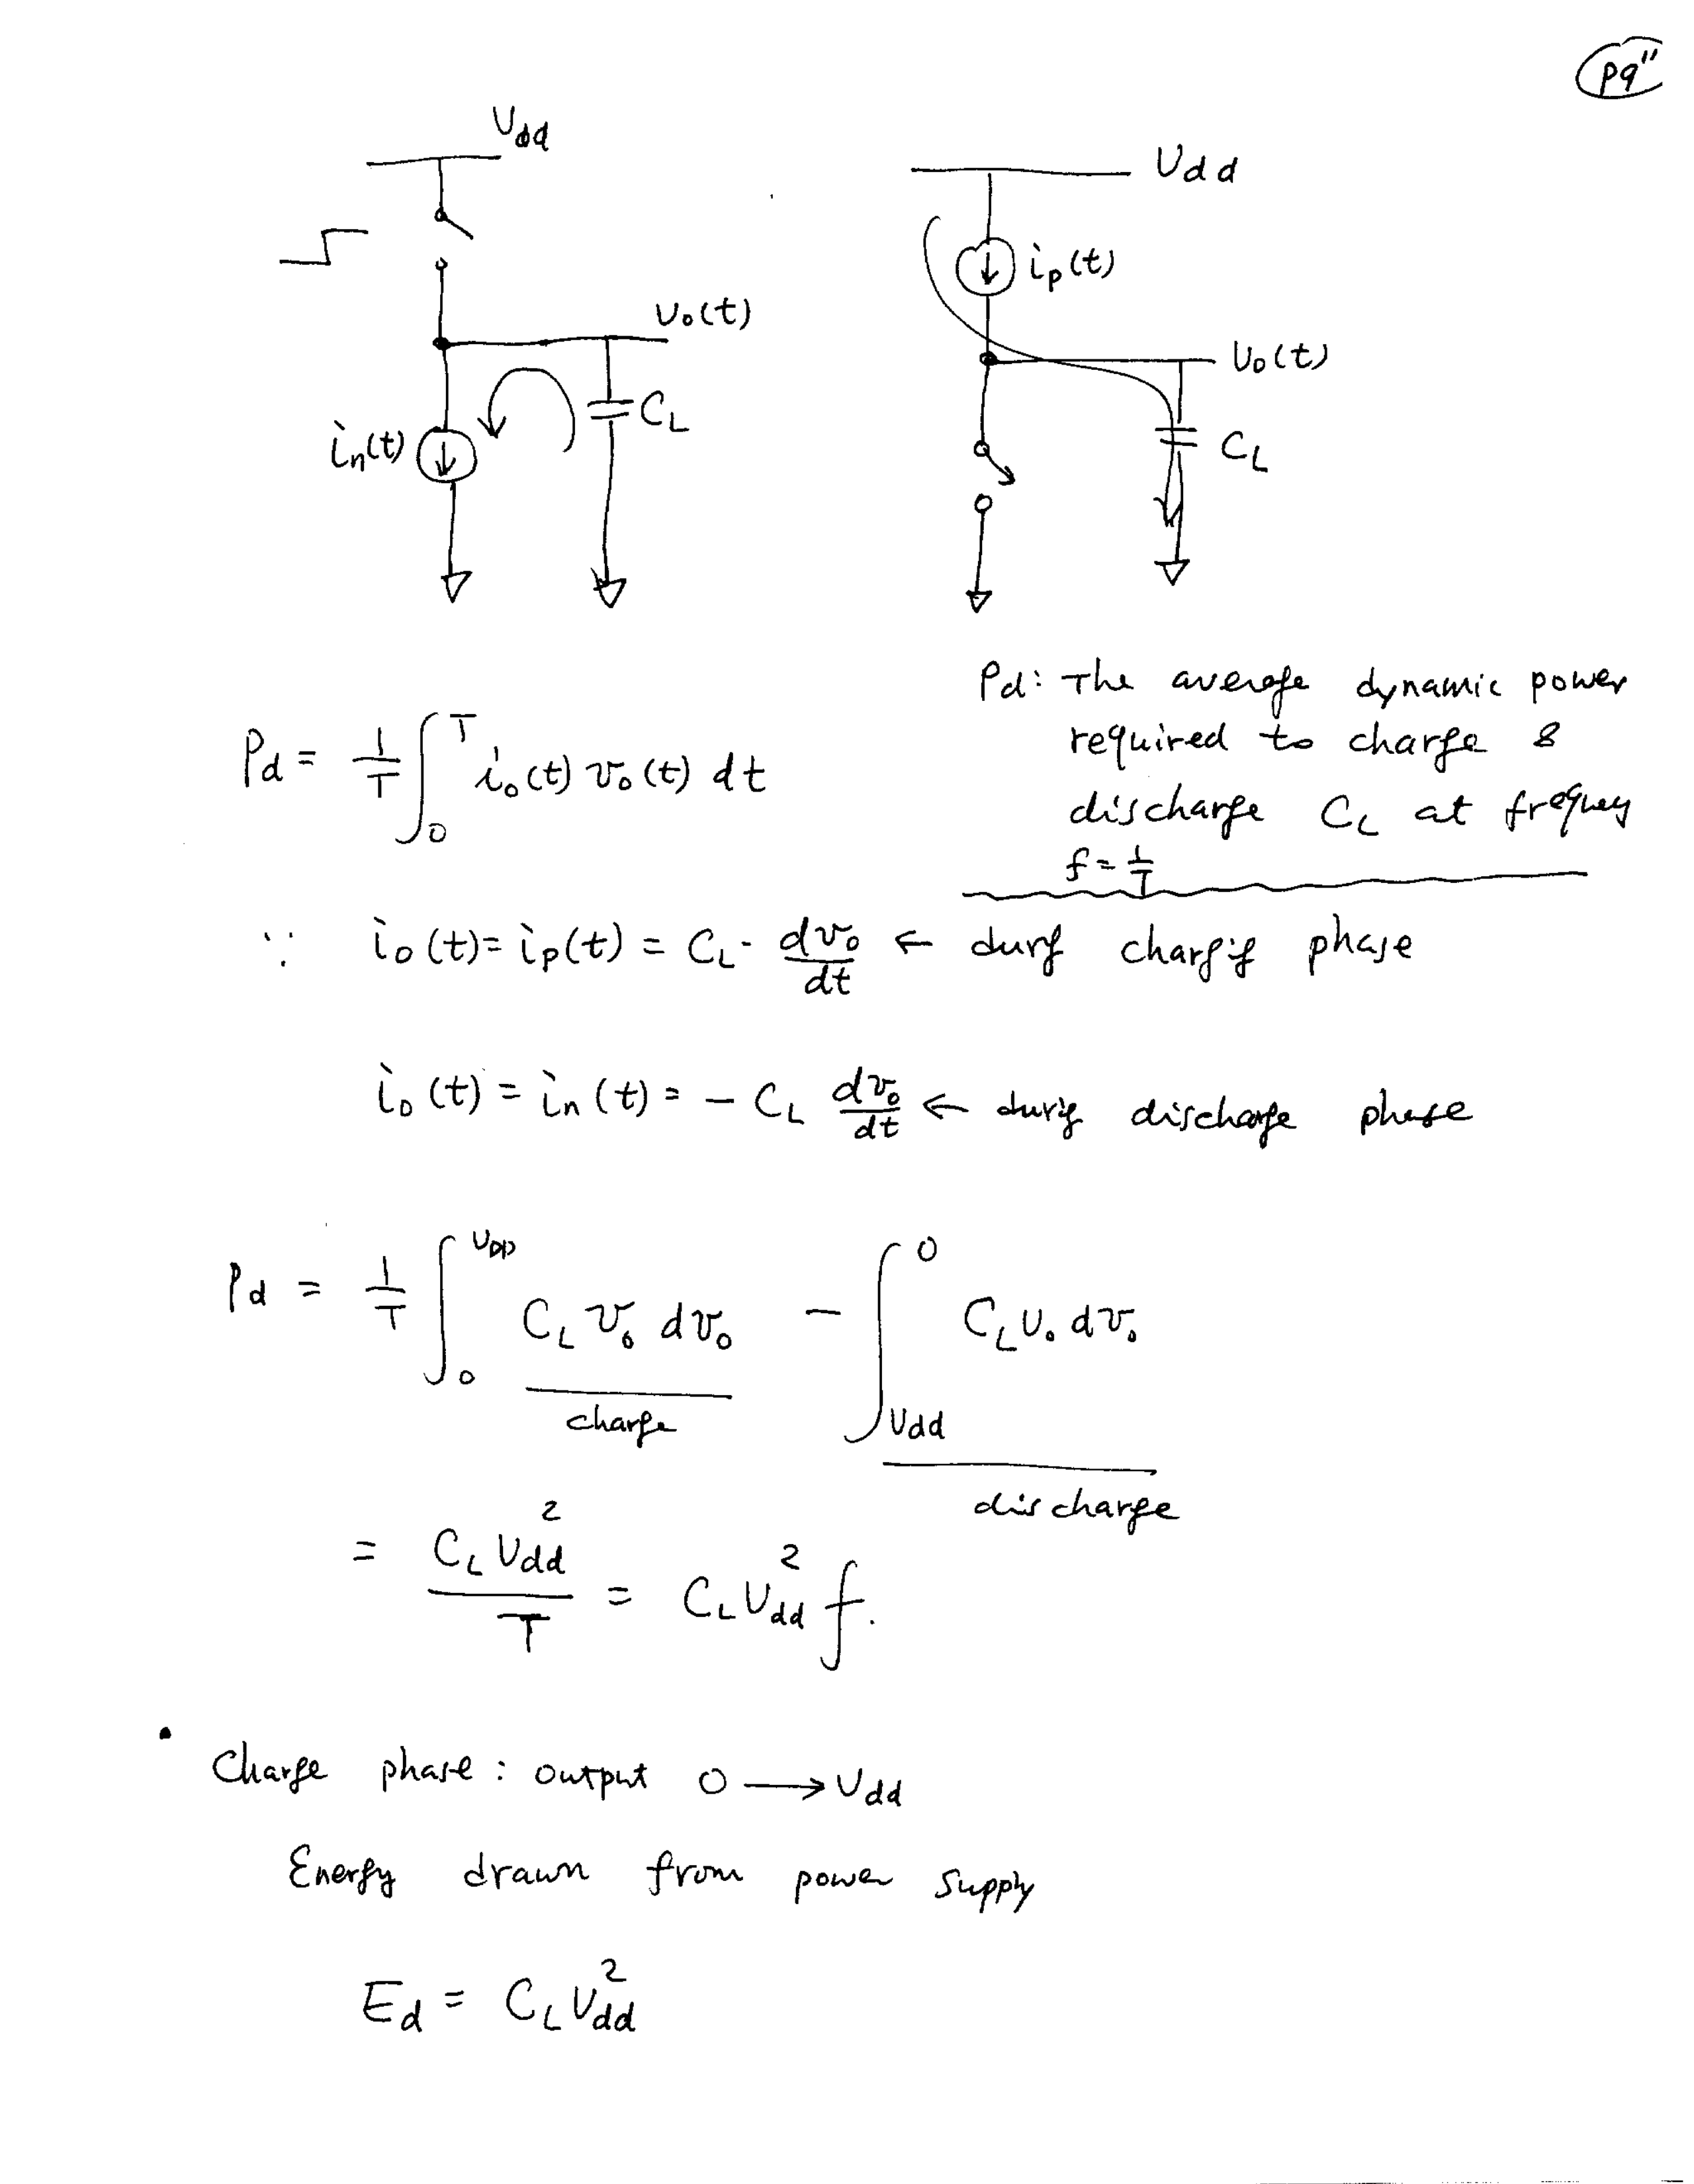 P9"
Vdd
Vdd
ip(t)
Vo(t)
Vo(t)
CL
in(t)
CL
Pd: The average dynamic power
required to charge &
discharge CL at
f = 1/T
Pd = 1/T ∫₀ᵀ io(t) vo(t) dt
∵ io(t) = ip(t) = CL · dvo/dt ← during charging phase
io(t) = in(t) = - CL dvo/dt ← during discharge phase
Pd = 1/T ∫₀^VDD CL vo dvo - ∫_Vdd^0 CL vo dvo
charge
discharge
= CL Vdd²/T = CL Vdd² f.
• Charge phase : output 0 → Vdd
Energy drawn from power supply
Ed = CL Vdd²